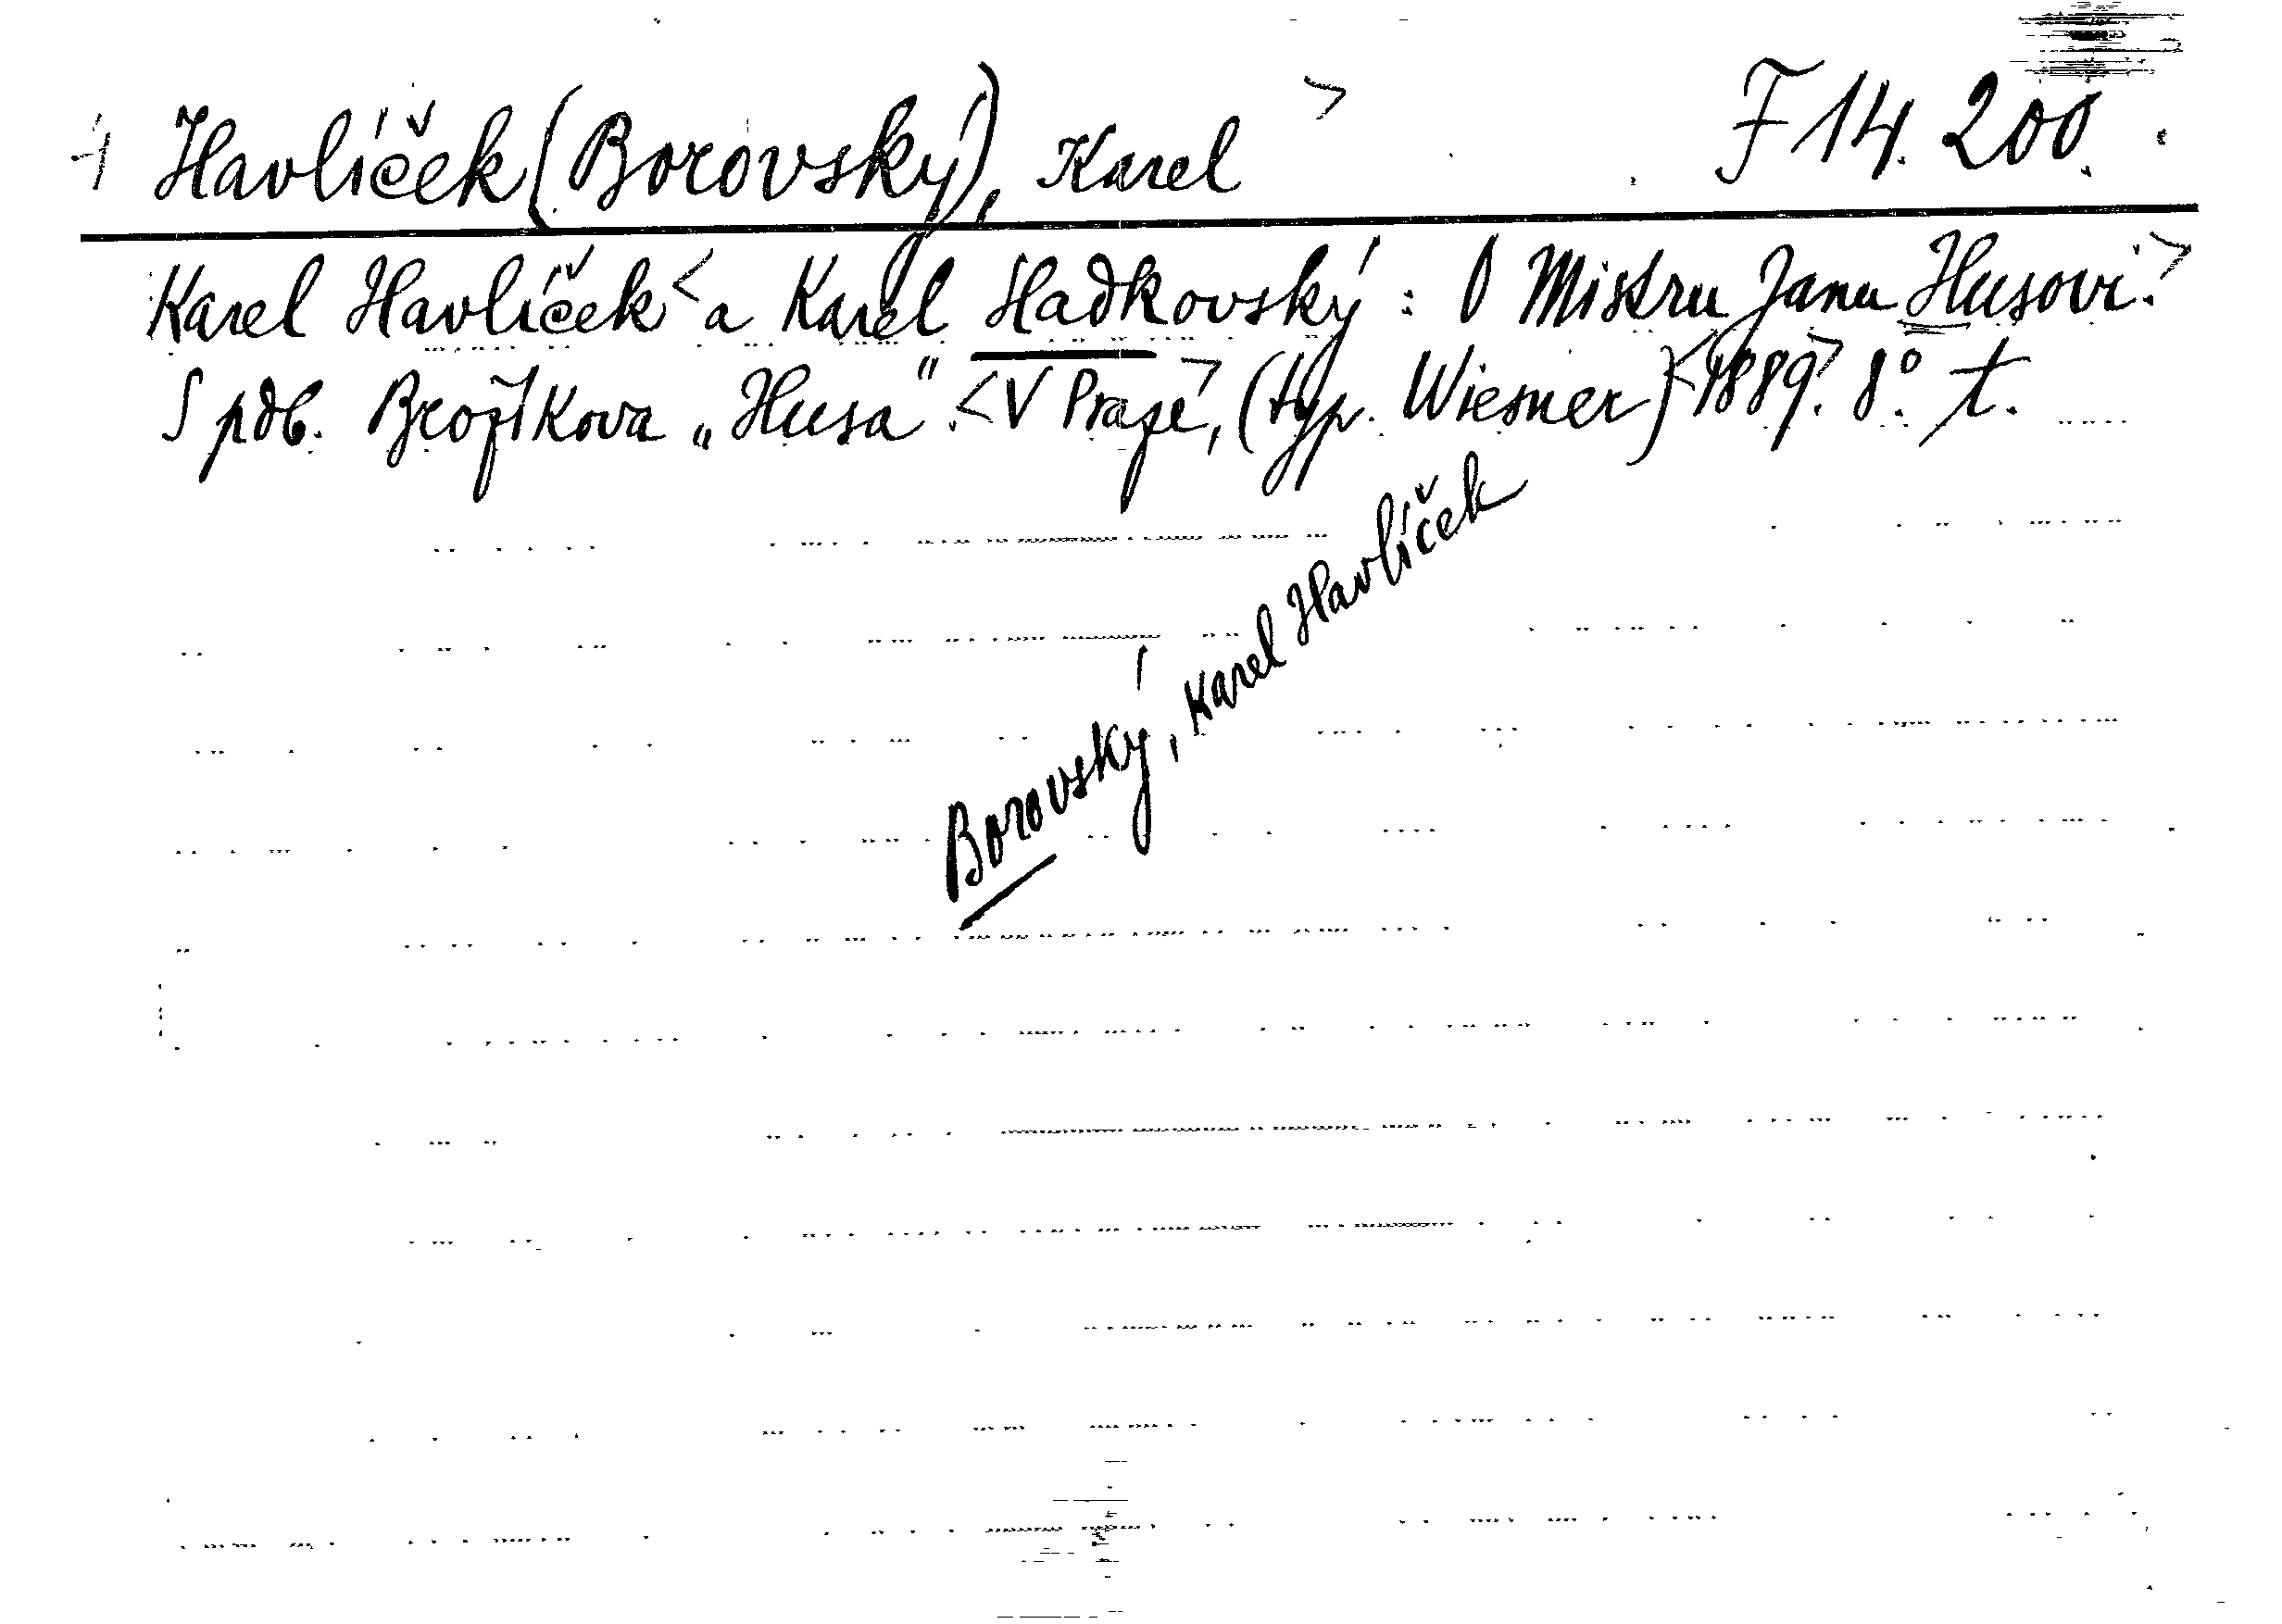 Havlíček (Borovský), Karel > F 14.200.
Karel Havlíček < a Karel Sladkovský: O Mistru Janu Husovi. >
S pdb. Brožíkova „Husa“. < V Praze >, (typ. Wiesner) < 1889 >. 8° t.
Borovský, Karel Havlíček